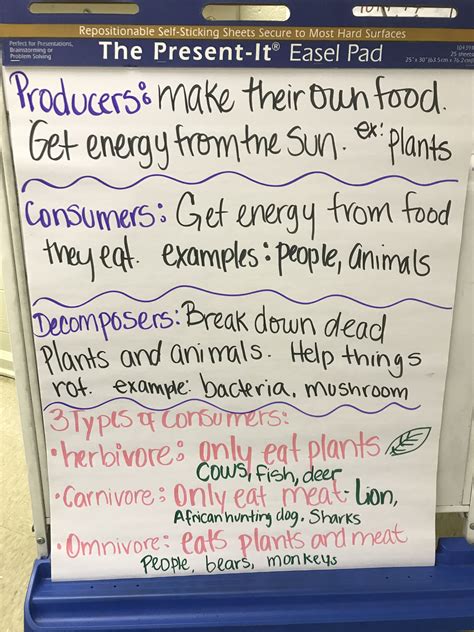 Repositionable Self-Sticking Sheets Secure to Most Hard Surfaces
Perfect for Presentations,
Brainstorming or
Problem Solving
The Present-It® Easel Pad
25 sheets
25" x 30" (63.5cm x 76.2cm)
Producers: make their own food.
Get energy from the Sun. ex: plants
Consumers: Get energy from food
they eat. examples: people, animals
Decomposers: Break down dead
Plants and animals. Help things
rot. example: bacteria, mushroom
3 Types of Consumers:
• herbivore: only eat plants
cows, fish, deer
• Carnivore: Only eat meat- Lion,
African hunting dog, Sharks
• Omnivore: eats plants and meat
People, bears, monkeys